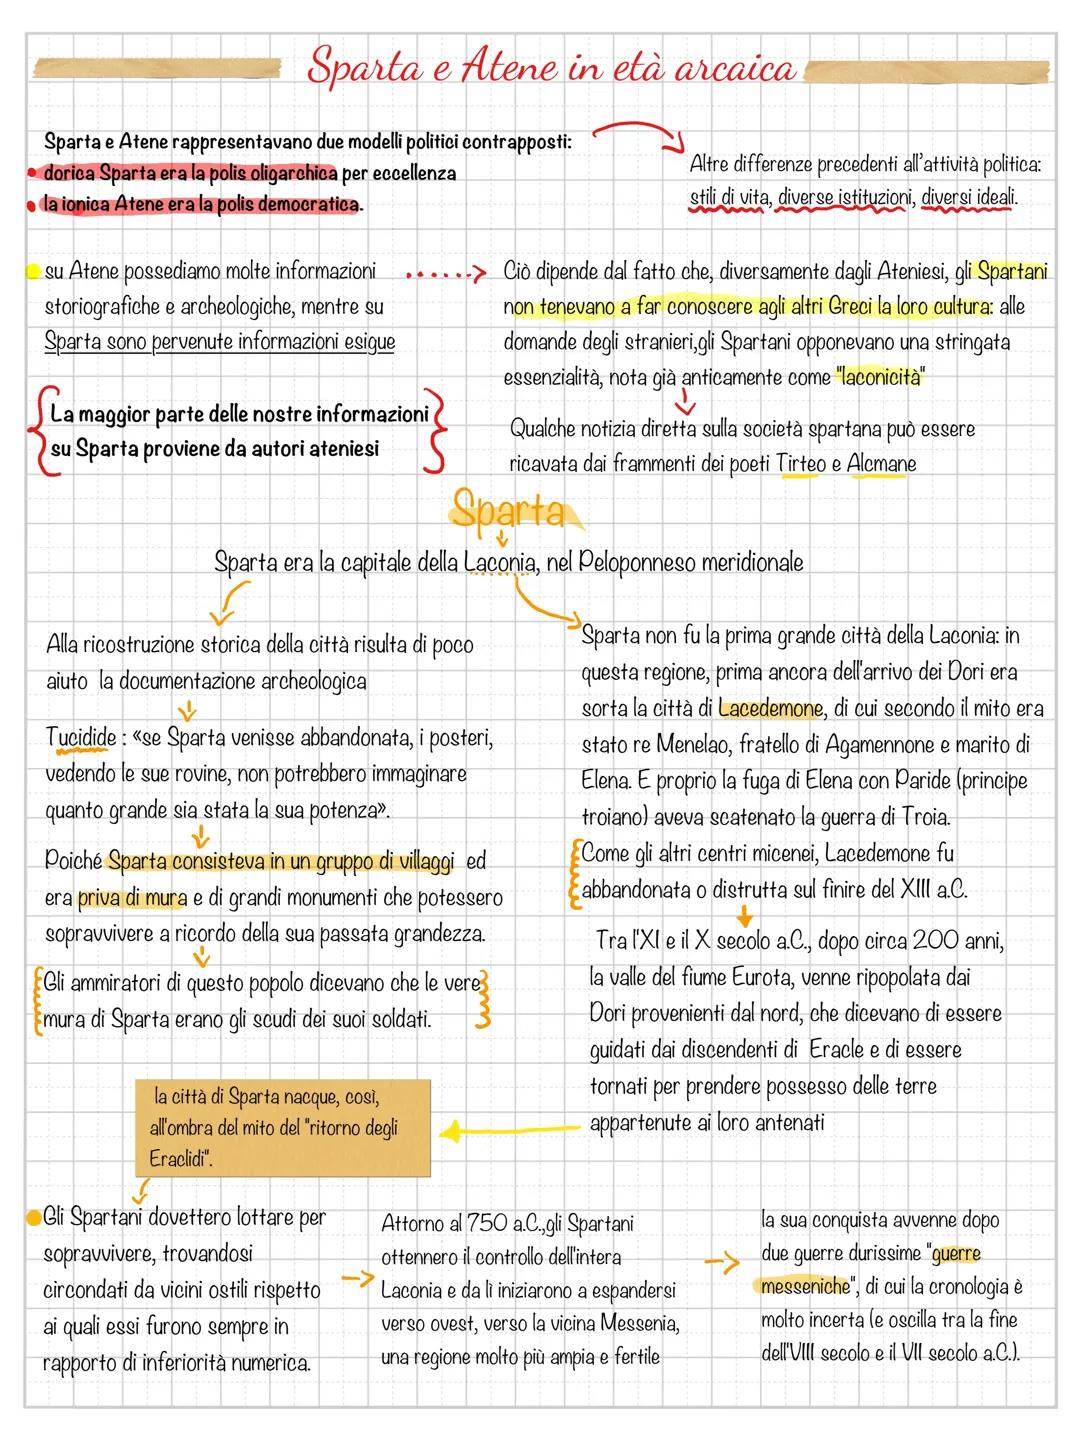 Sparta e Atene in età arcaica
Sparta e Atene rappresentavano due modelli politici contrapposti:
dorica Sparta era la polis oligarchica per eccellenza
la ionica Atene era la polis democratica.
Altre differenze precedenti all'attività politica:
stili di vita, diverse istituzioni, diversi ideali.
su Atene possediamo molte informazioni
storiografiche e archeologiche, mentre su
Sparta sono pervenute informazioni esigue
Ciò dipende dal fatto che, diversamente dagli Ateniesi, gli Spartani
non tenevano a far conoscere agli altri Greci la loro cultura: alle
domande degli stranieri,gli Spartani opponevano una stringata
essenzialità, nota già anticamente come "laconicità"
La maggior parte delle nostre informazioni
su Sparta proviene da autori ateniesi
Qualche notizia diretta sulla società spartana può essere
ricavata dai frammenti dei poeti Tirteo e Alcmane
Sparta
Sparta era la capitale della Laconia, nel Peloponneso meridionale
Alla ricostruzione storica della città risulta di poco
aiuto la documentazione archeologica
Tucidide : «se Sparta venisse abbandonata, i posteri,
vedendo le sue rovine, non potrebbero immaginare
quanto grande sia stata la sua potenza».
Poiché Sparta consisteva in un gruppo di villaggi ed
era priva di mura e di grandi monumenti che potessero
sopravvivere a ricordo della sua passata grandezza.
Gli ammiratori di questo popolo dicevano che le vere
mura di Sparta erano gli scudi dei suoi soldati.
Sparta non fu la prima grande città della Laconia: in
questa regione, prima ancora dell'arrivo dei Dori era
sorta la città di Lacedemone, di cui secondo il mito era
stato re Menelao, fratello di Agamennone e marito di
Elena. E proprio la fuga di Elena con Paride (principe
troiano) aveva scatenato la guerra di Troia.
Come gli altri centri micenei, Lacedemone fu
abbandonata o distrutta sul finire del XIII a.C.
Tra l'XI e il X secolo a.C., dopo circa 200 anni,
la valle del fiume Eurota, venne ripopolata dai
Dori provenienti dal nord, che dicevano di essere
guidati dai discendenti di Eracle e di essere
tornati per prendere possesso delle terre
appartenute ai loro antenati
la città di Sparta nacque, così,
all'ombra del mito del "ritorno degli
Eraclidi".
Gli Spartani dovettero lottare per
sopravvivere, trovandosi
circondati da vicini ostili rispetto
ai quali essi furono sempre in
rapporto di inferiorità numerica.
Attorno al 750 a.C.,gli Spartani
ottennero il controllo dell'intera
Laconia e da lì iniziarono a espandersi
verso ovest, verso la vicina Messenia,
una regione molto più ampia e fertile
la sua conquista avvenne dopo
due guerre durissime "guerre
messeniche", di cui la cronologia è
molto incerta (e oscilla tra la fine
dell'VIII secolo e il VII secolo a.C.).